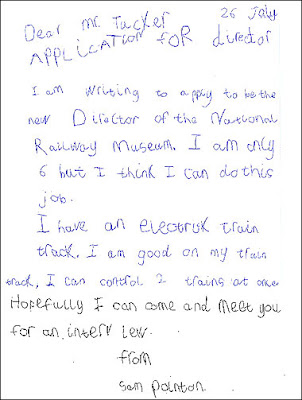 26 July
Dear Mr. Tucker
APPLICATION FOR director
I am writing to apply to be the
new Director of the National
Railway Museum. I am only
6 but I think I can do this
job.
I have an electruk train
track. I am good on my train
track. I can control 2 trains at once
Hopefully I can come and meet you
for an interview.
from
Sam pointon